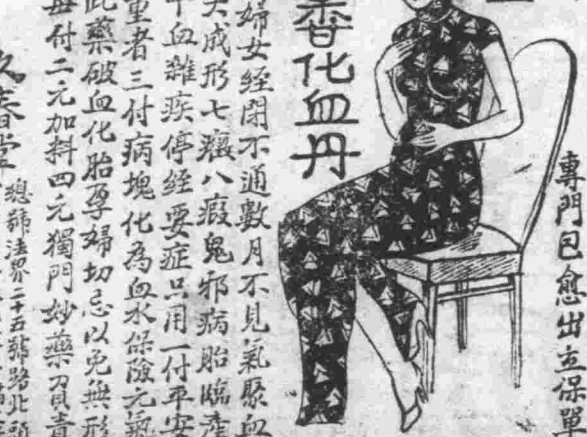 專門包愈出立保單
香化血丹
婦女經閉不通數月不見氣聚血
成形七癥八瘕鬼邪病胎臨產
血雜疾停經要症只用一付平安
重者三付病塊化為血水保險元氣
此藥破血化胎孕婦切忌以免無形
每付二元加料四元獨門妙藥負責
春堂
總號法界二十五號路北頭